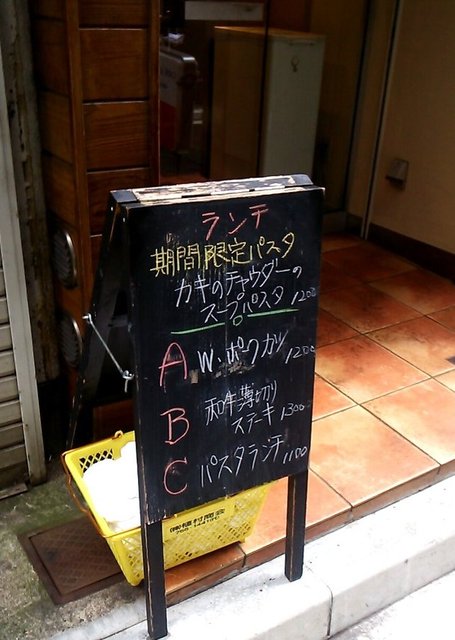 ランチ
期間限定パスタ
カキのチャウダーの
スープパスタ 1200
A W.ポークカツ 1200
B 和牛薄切り
ステーキ 1300
C パスタランチ 1100